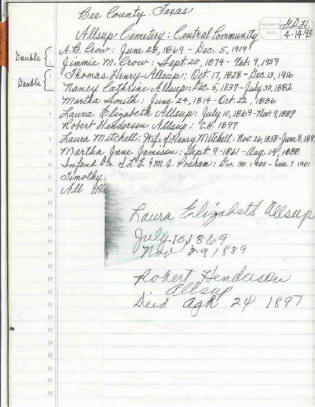 Bee County, Texas
Allsup Cemetery: Central Community
4-14-93
Double { A.B. Crow: June 28, 1869 - Dec. 5, 1919
Jimmie M. Crow: Sept 20, 1874 - Feb. 9, 1959
Double { Thomas Henry Allsup: Oct 17, 1828 - Dec. 13, 1916
Nancy Cathrine Allsup: Dec 5, 1837 - July 30, 1882
Martha Smith: June 24, 1814 - Oct 22, 1886
Laura Elizabeth Allsup: July 10, 1869 - Nov 9, 1889
Robert Henderson Allsup: 1897
Laura Mitchell: Wife of Henry Mitchell: Nov. 26, 1858 - June 8,
Martha Jane Jamison: Sept 9 - 1841 - Aug 19, 1888
Infand of L.E. & M.J. : Dec. 30, 1900 - Jan. 7 1901
Timothy
All
Laura Elizabeth Allsup
July 10, 1869
Nov 29 1889
Robert Henderson
Allsup
Died Agh 24 1897